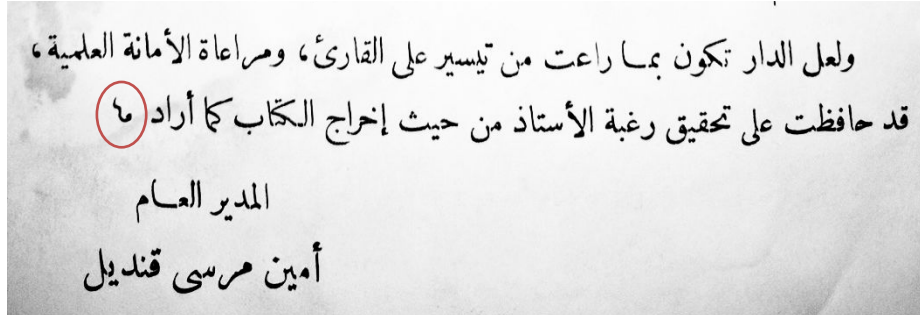 ولعل الدار تكون بما راعت من تيسير على القارئ، ومراعاة الأمانة العلمية،
قد حافظت على تحقيق رغبة الأستاذ من حيث إخراج الكتاب كما أراد
المدير العام
أمين مرسى قنديل